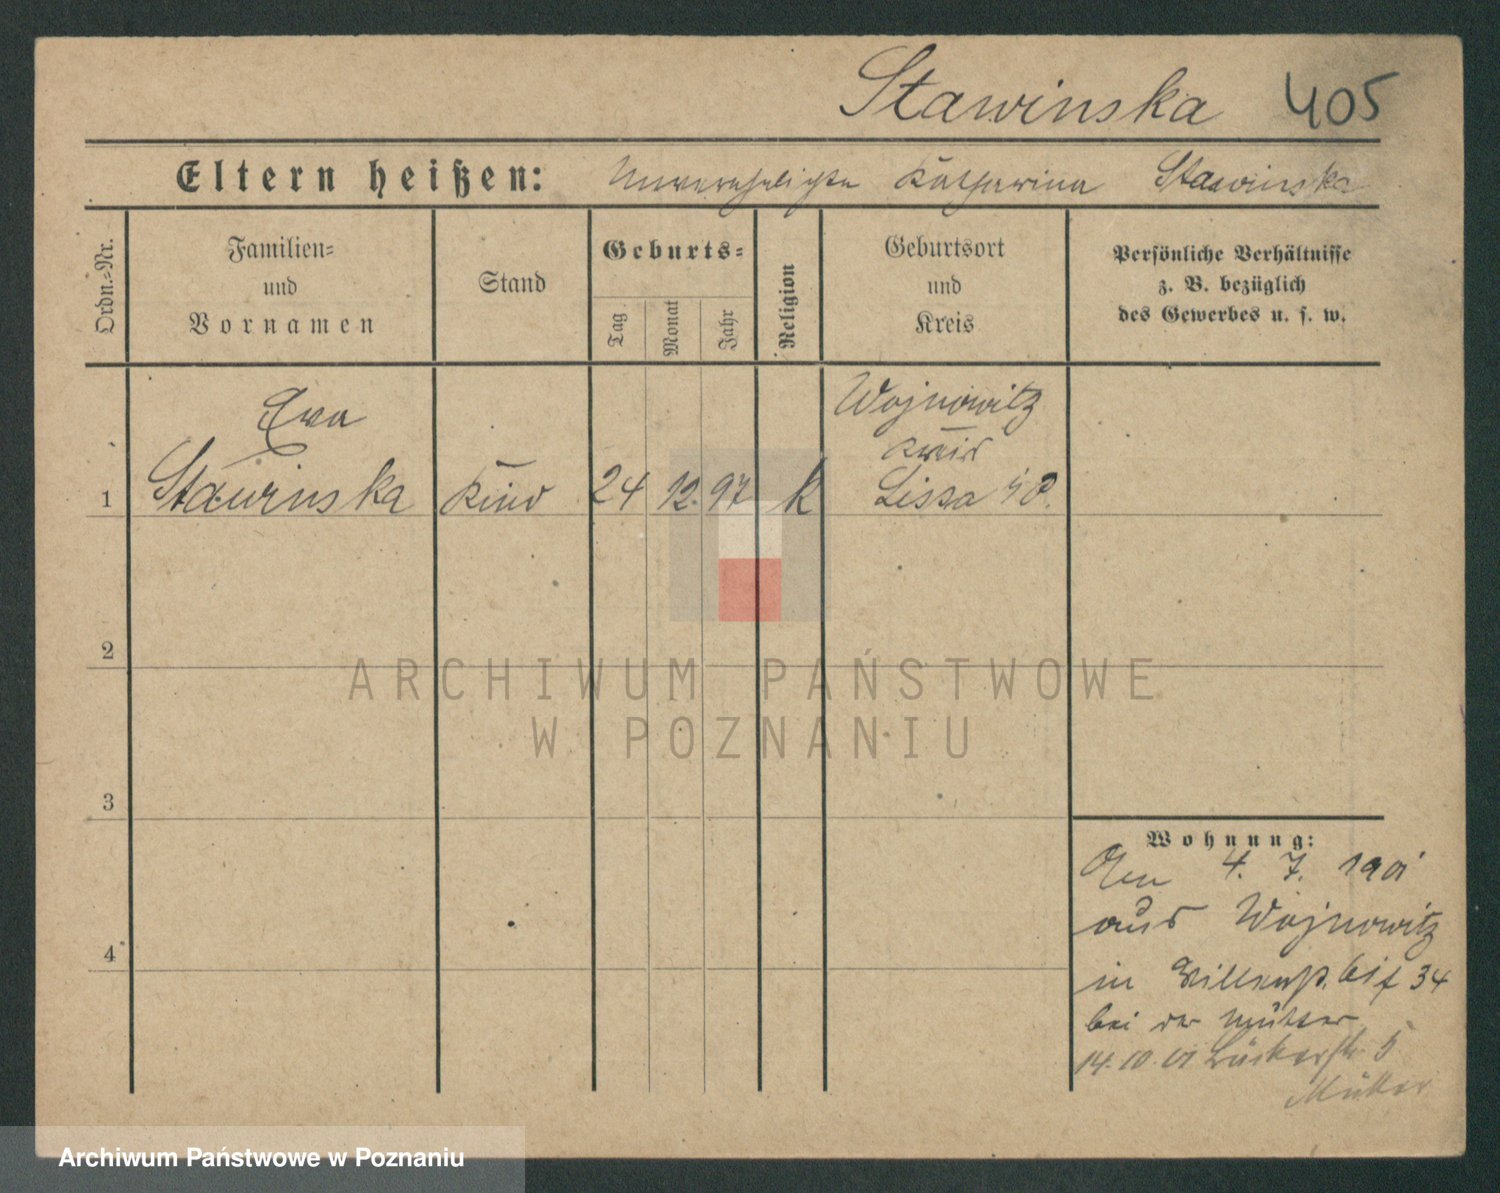 Stawinska 405
Eltern heißen: Unverehelichte Katharina Stawinska
Ordn.=Nr.
Familien=
und
Vornamen
Stand
Geburts=
Tag
Monat
Jahr
Religion
Geburtsort
und
Kreis
Persönliche Verhältnisse
z. B. bezüglich
des Gewerbes u. s. w.
Eva
Stawinska
1
Kind
24
12.
97
k
Wojnowitz
Kreis
Lissa
2
3
4
Wohnung:
Den 4. 7. 1901
aus Wojnowitz
in 34
bei der Mutter
14. 10. 01 5
Mutter
ARCHIWUM PAŃSTWOWE
W POZNANIU
Archiwum Państwowe w Poznaniu